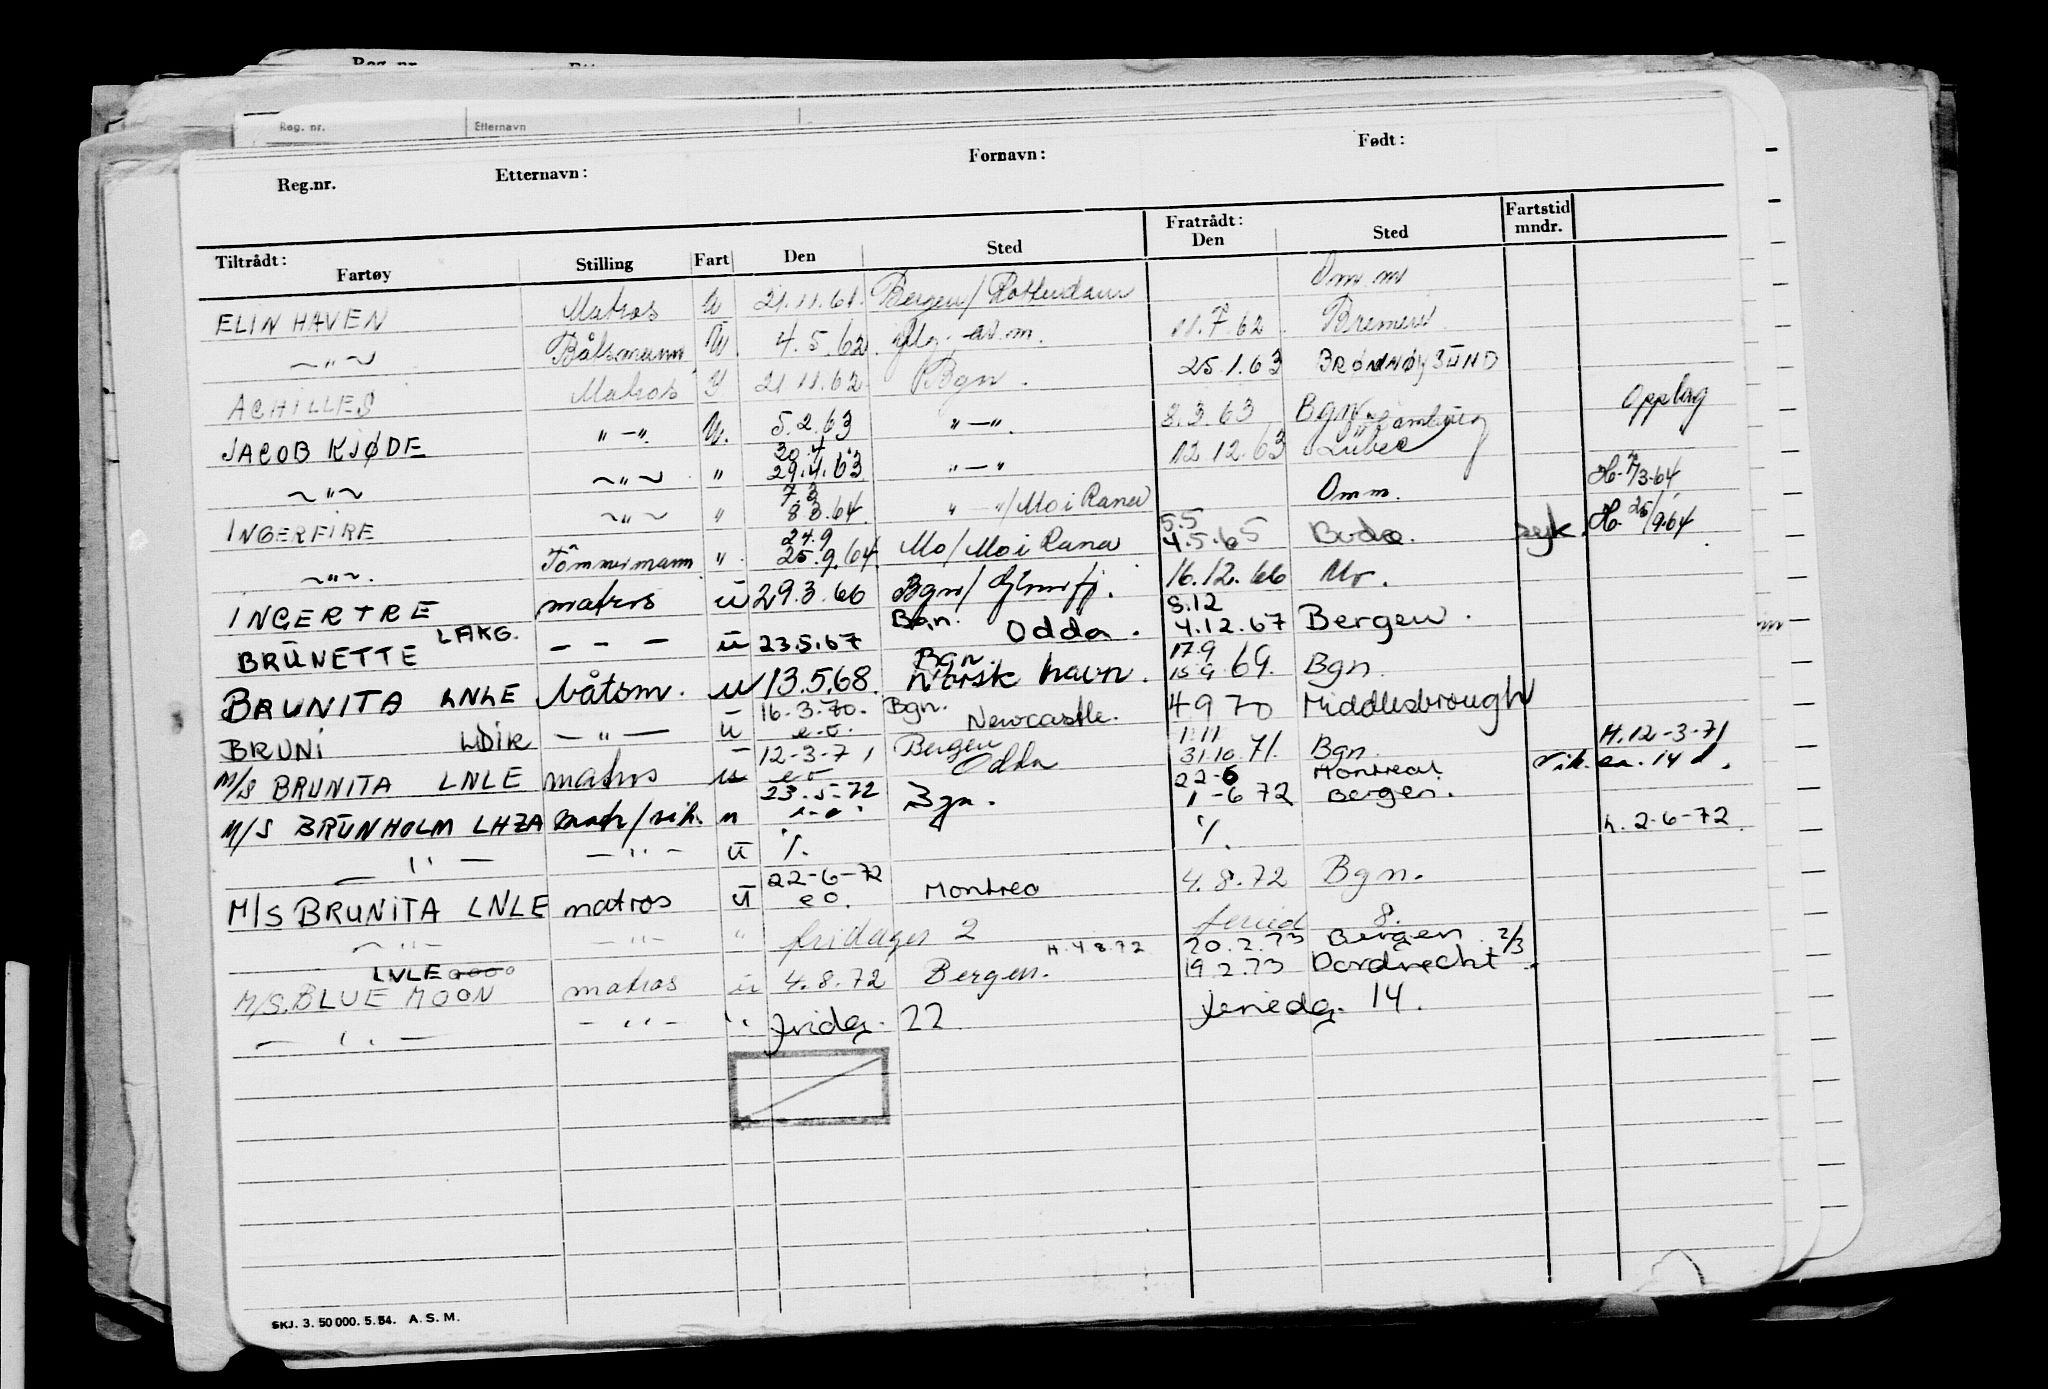 Reg. nr. Etternavn
Reg.nr. Etternavn: Fornavn: Født:
Tiltrådt: Fratrådt: Fartstid
Fartøy Stilling Fart Den Sted Den Sted mndr.
ELIN HAVEN Matros U 21.11.61. Bergen/Rotterdam Omm
— " — Båtsmann U. 4.5.62. 11.7.62. Bremen
ACHILLES Matros U 21.11.62 Bgn. 25.1.63 BRØNNØYSUND
JACOB KJØDE " — " U. 5.2.63 " — ". 8.3.63 Bgn Hamburg Opplag
30.4
— " — — " — " 29.4.63 " — " 12.12.63 Lübec
7.3
INGERFIRE — " — " 8.3.64. " — "/Mo i Rana Omm. H. 7/3-64
24.9 5.5
— " —. Tømmermann " 25.9.64. Mo/Mo i Rana 4.5.65 Bodø. syk. H. 25/9.64
INGERTRE matros ü 29.3.66 Bgn/Glomfj. 16.12.66 Mo.
Bgn. 8.12
BRUNETTE LAKG. — — — ü 23.5.67 Odda. 4.12.67 Bergen.
Bgn. 17.9
BRUNITA LNLE båtsm. u 13.5.68. Norsk havn. 15.9.69. Bgn.
16.3.70. Bgn.
BRUNI LDIR — " — ü e.o. Newcastle. 4 9 70 Middlesbrough
12-3-71 Bergen 1.11 H. 12-3-71
M/S BRUNITA LNLE matros u e o Odda 31.10.71. Bgn. Vik. ca. 14 d.
23.5-72 22-6 Montreal
M/S BRUNHOLM LHZA matr/vik. u e-o. Bgn. 1-6 72 Bergen.
— " — — " — ü %. %. h. 2-6-72.
22-6-72
M/S BRUNITA LNLE matros ü e o. Montrea 4.8.72 Bgn.
— " — — " — " fridager 2 feried 8.
H. 4.8.72 20.2.73 Bergen. 2/3
LNLE
M/S. BLUE MOON matros ü 4.8.72 Bergen. 19.2.73 Dordrecht.
— " — — " — " fridg. 22 feriedg. 14.
SKJ. 3. 50 000. 5. 54. A. S. M.